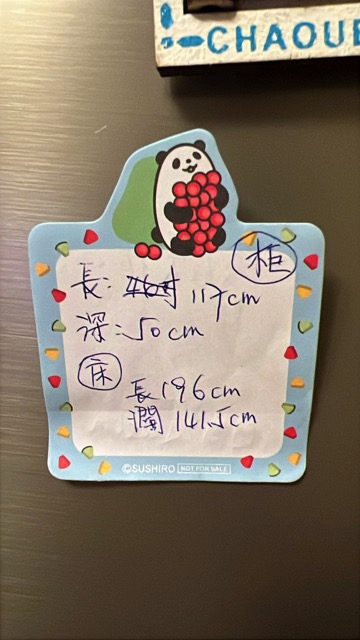 CHAOUE
柜
長: 117cm
深: 50cm
床
長196cm
瀾 141.5cm
©SUSHIRO NOT FOR SALE